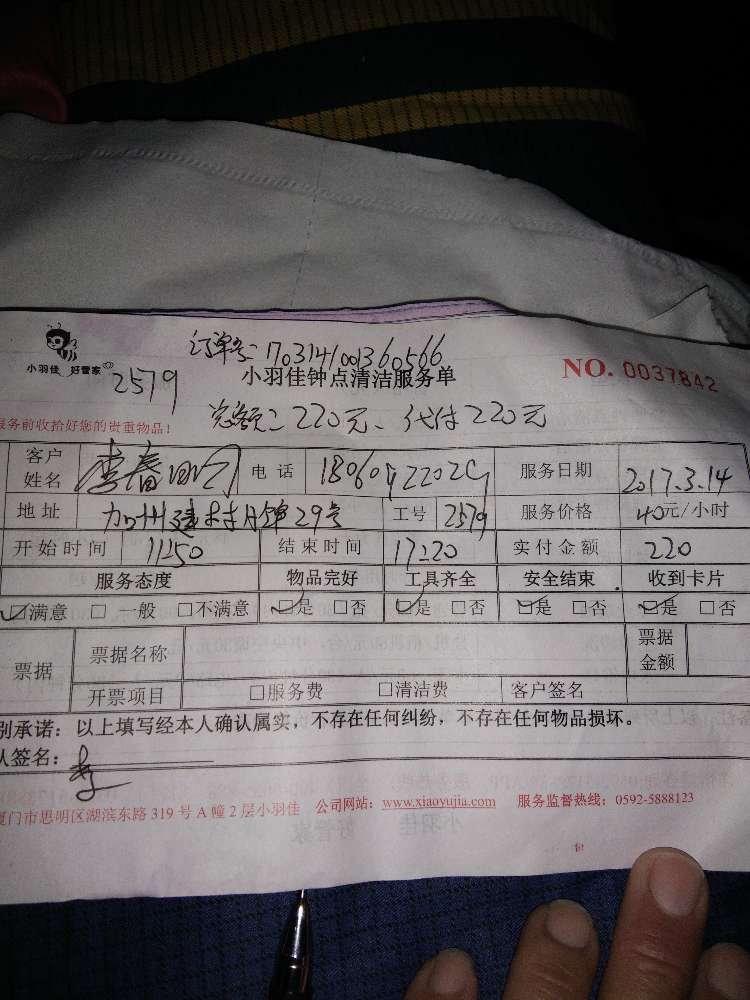 订单号:1703141001360566
小羽佳 好管家
2579
小羽佳钟点清洁服务单
NO. 0037842
服务前收拾好您的贵重物品!
总额:220元、代付220元
客户姓名 李春 电话 服务日期 2017.3.14
地址 29号 工号 2579 服务价格 40元/小时
开始时间 11:50 结束时间 17:20 实付金额 220
服务态度 物品完好 工具齐全 安全结束 收到卡片
☑满意 □一般 □不满意 ☑是 □否 ☑是 □否 ☑是 □否 ☑是 □否
票据 票据名称 票据金额
开票项目 □服务费 □清洁费 客户签名
别承诺:以上填写经本人确认属实,不存在任何纠纷,不存在任何物品损坏。
人签名:
厦门市思明区湖滨东路 319 号 A 幢 2 层小羽佳 公司网站:www.xiaoyujia.com 服务监督热线:0592-5888123